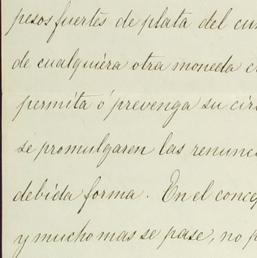 pesos fuertes de plata del cu
de cualquiera otra moneda c
permita ó prevenga su cir
se promulgaren las renunc
debida forma. En el conce
y mucho mas se pase, no p